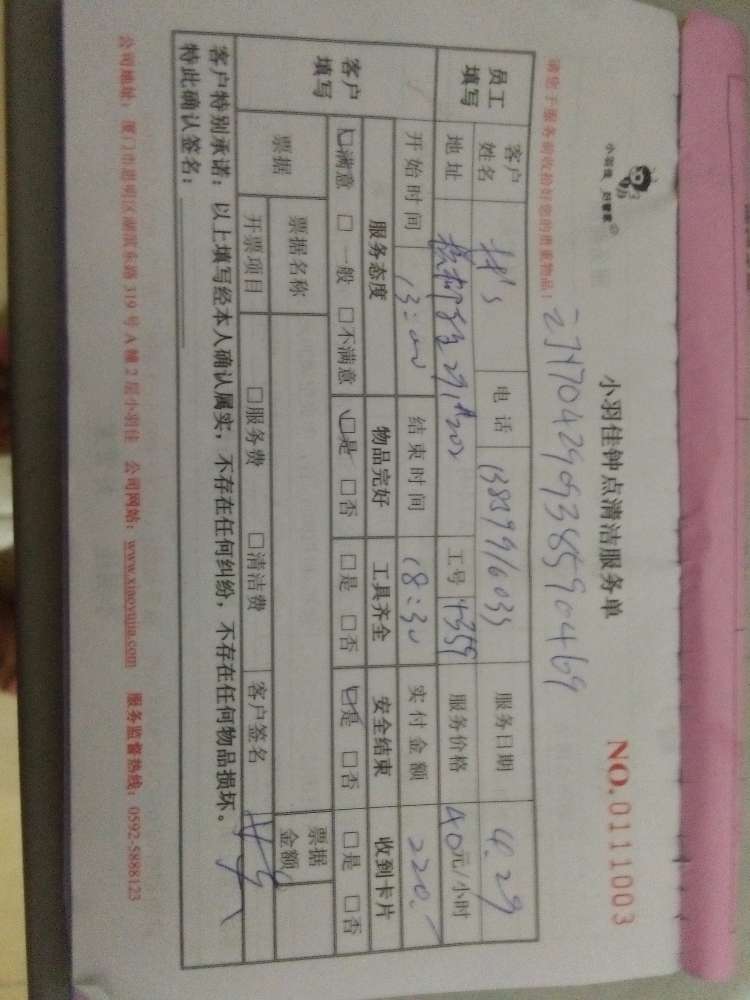 小羽佳 好管家
小羽佳钟点清洁服务单
NO.0111003
请您于服务前收拾好您的贵重物品!
员工填写
客户姓名 林's 电话 13859916035 服务日期 4.29
地址 工号 4359 服务价格 40元/小时
开始时间 13:00 结束时间 18:30 实付金额 220.-
客户填写
服务态度 物品完好 工具齐全 安全结束 收到卡片
☑满意 □一般 □不满意 ☑是 □否 □是 □否 ☑是 □否 □是 □否
票据 票据名称 票据金额
开票项目 □服务费 □清洁费 客户签名
客户特别承诺:以上填写经本人确认属实,不存在任何纠纷,不存在任何物品损坏。
特此确认签名:
公司地址:厦门市思明区湖滨东路319号A幢2层小羽佳 公司网站:www.xiaoyujia.com 服务监督热线:0592-5888123